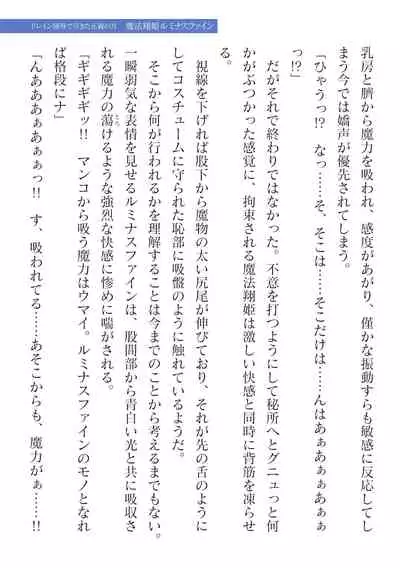 ドレイン刻辱で尽きた正義の力　魔法翔姫ルミナスファイン
乳房と臍から魔力を吸われ、感度があがり、僅かな振動すらも敏感に反応してし
まう今では嬌声が優先されてしまう。
「ひゃうっ!?　なっ……そ、そこは……そこだけは……んはあぁあぁぁあぁぁ
っ!?」
だがそれで終わりではなかった。不意を打つようにして秘所へとグニュっと何
かがぶつかった感覚に、拘束される魔法翔姫は激しい快感と同時に背筋を凍らせ
る。
視線を下げれば股下から魔物の太い尻尾が伸びており、それが先の舌のように
してコスチュームに守られた恥部に吸盤のように触れているようだ。
そこから何が行われるかを理解することは今までのことから考えるまでもない。
一瞬弱気な表情を見せるルミナスファインは、股間部から青白い光と共に吸収さ
れる魔力の蕩けるような強烈な快感に惨めに喘がされる。
「ギギギギッ!!　マンコから吸う魔力はウマイ。ルミナスファインのモノとなれ
ば格段にナ」
「んああああぁあぁぁっ!!　す、吸われてる……あそこからも、魔力がぁ……!!